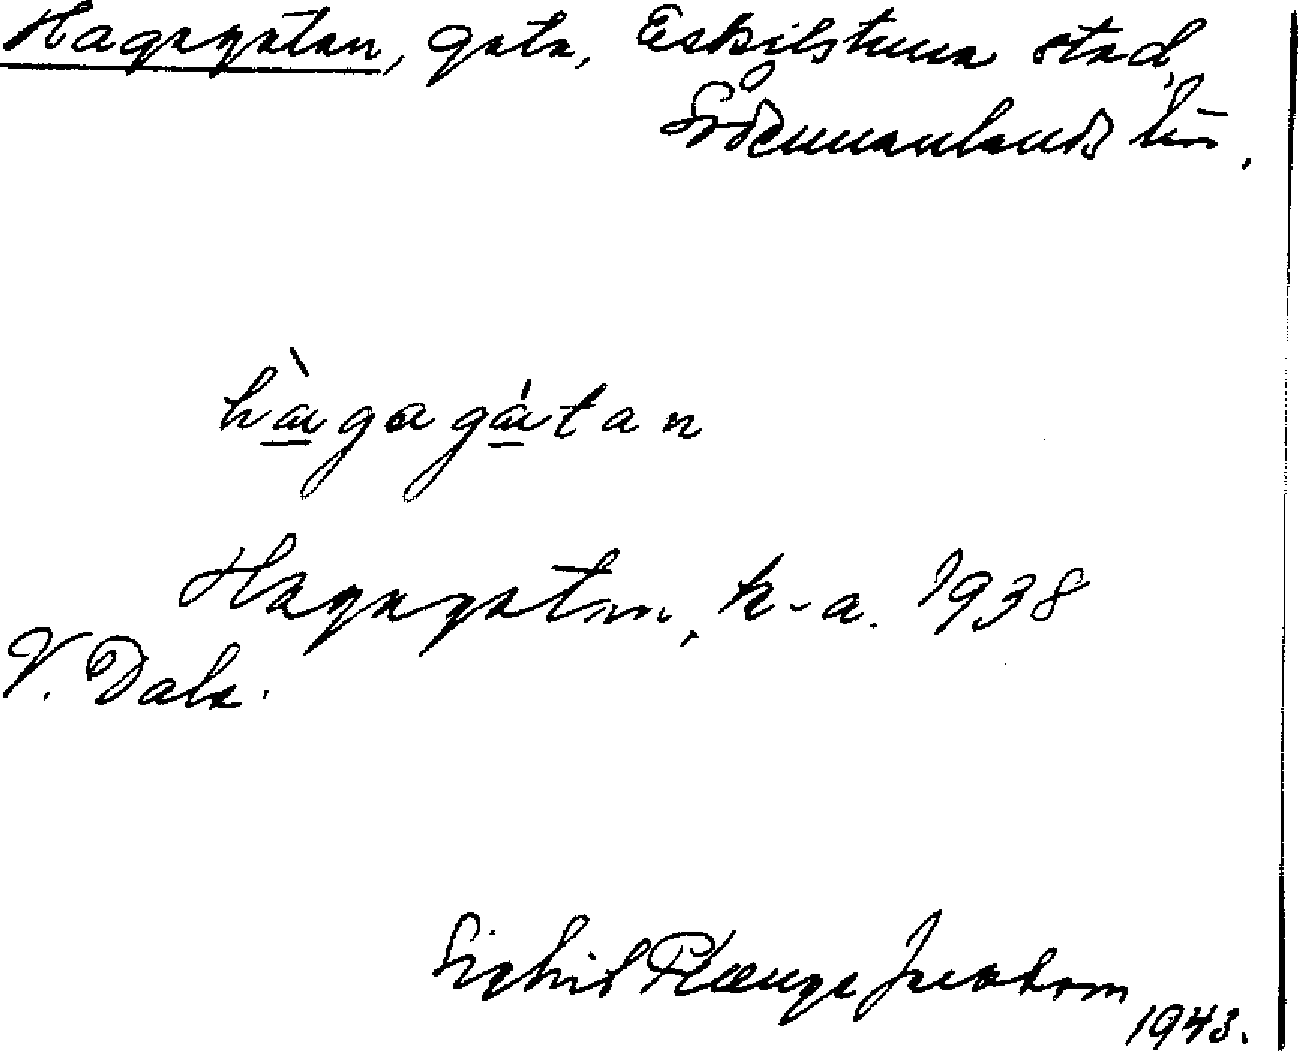 Hagagatan, gata, Eskilstuna stad,
Södermanlands län.
hàgagátan
Hagagatan, k-a. 1938
V. Dala.
Sigrid Jacobson
1943.